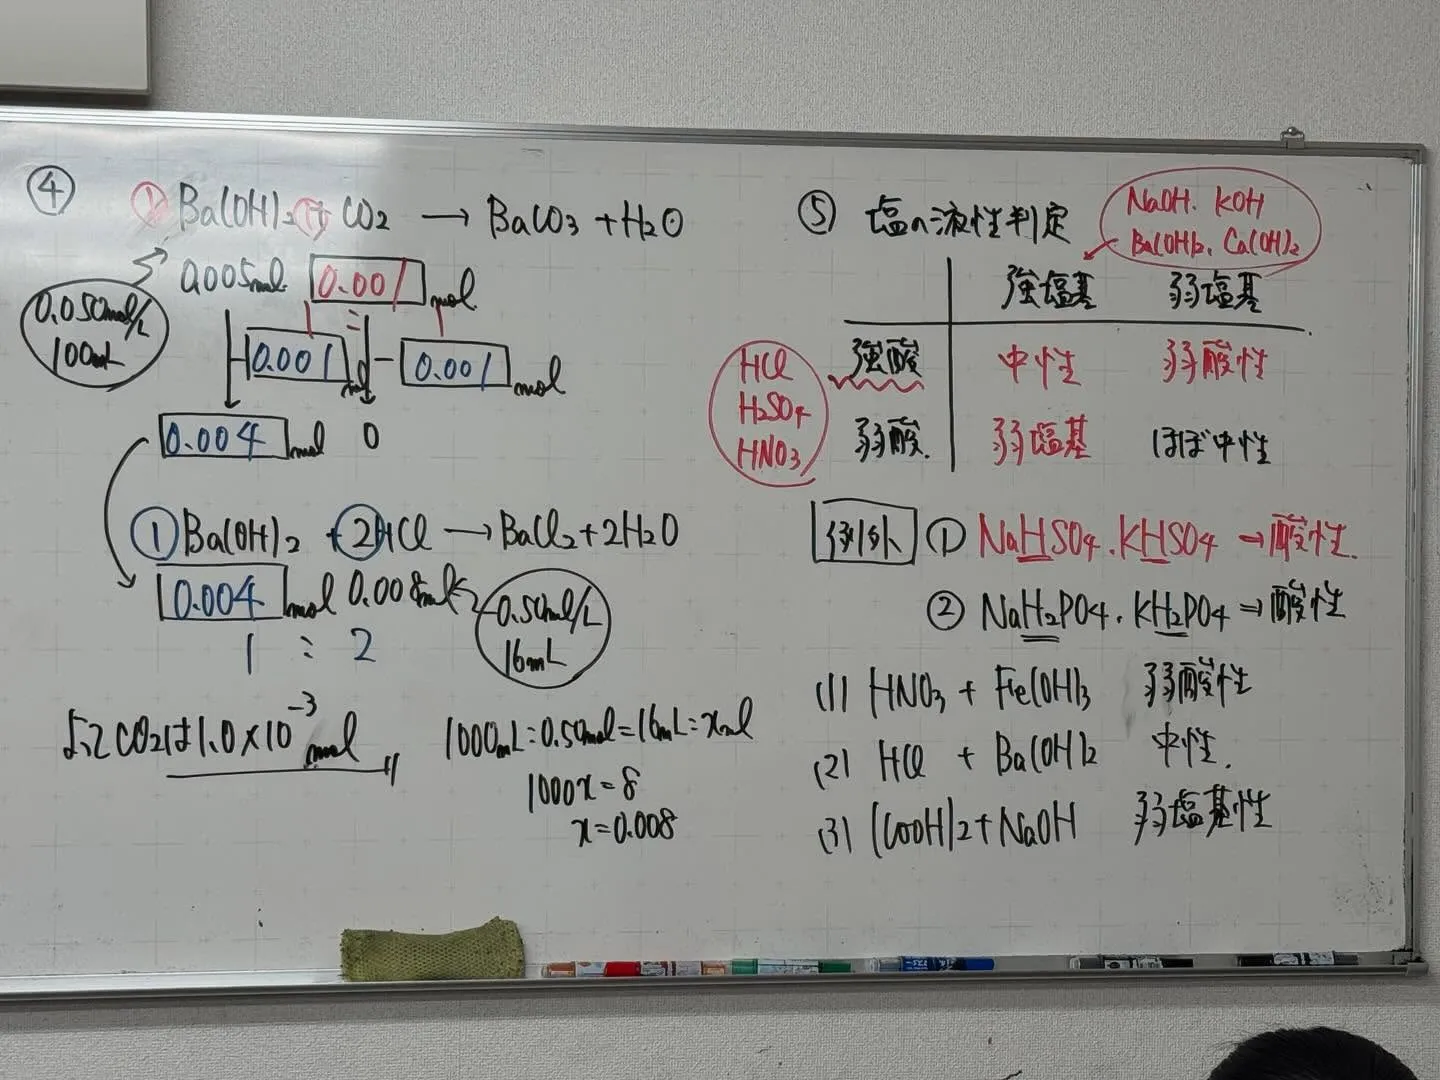 ④ ①Ba(OH)₂ + ①CO₂ → BaCO₃ + H₂O
0.050mol/L
100mL
0.005mol 0.001 mol
1 : 1
-0.001 mol -0.001 mol
0.004 mol 0
①Ba(OH)₂ + ②HCl → BaCl₂ + 2H₂O
0.004 mol 0.008mol
0.50mol/L
16mL
1 : 2
よってCO₂は1.0×10⁻³mol
1000mL:0.50mol=16mL:xmol
1000x=8
x=0.008
⑤ 塩の液性判定
NaOH. KOH
Ba(OH)₂. Ca(OH)₂
強塩基 弱塩基
強酸 中性 弱酸性
弱酸. 弱塩基 ほぼ中性
HCl
H₂SO₄
HNO₃
例外 ① NaHSO₄.KHSO₄→酸性.
② NaH₂PO₄.KH₂PO₄⇒酸性
(1) HNO₃ + Fe(OH)₃ 弱酸性
(2) HCl + Ba(OH)₂ 中性.
(3) (COOH)₂+NaOH 弱塩基性